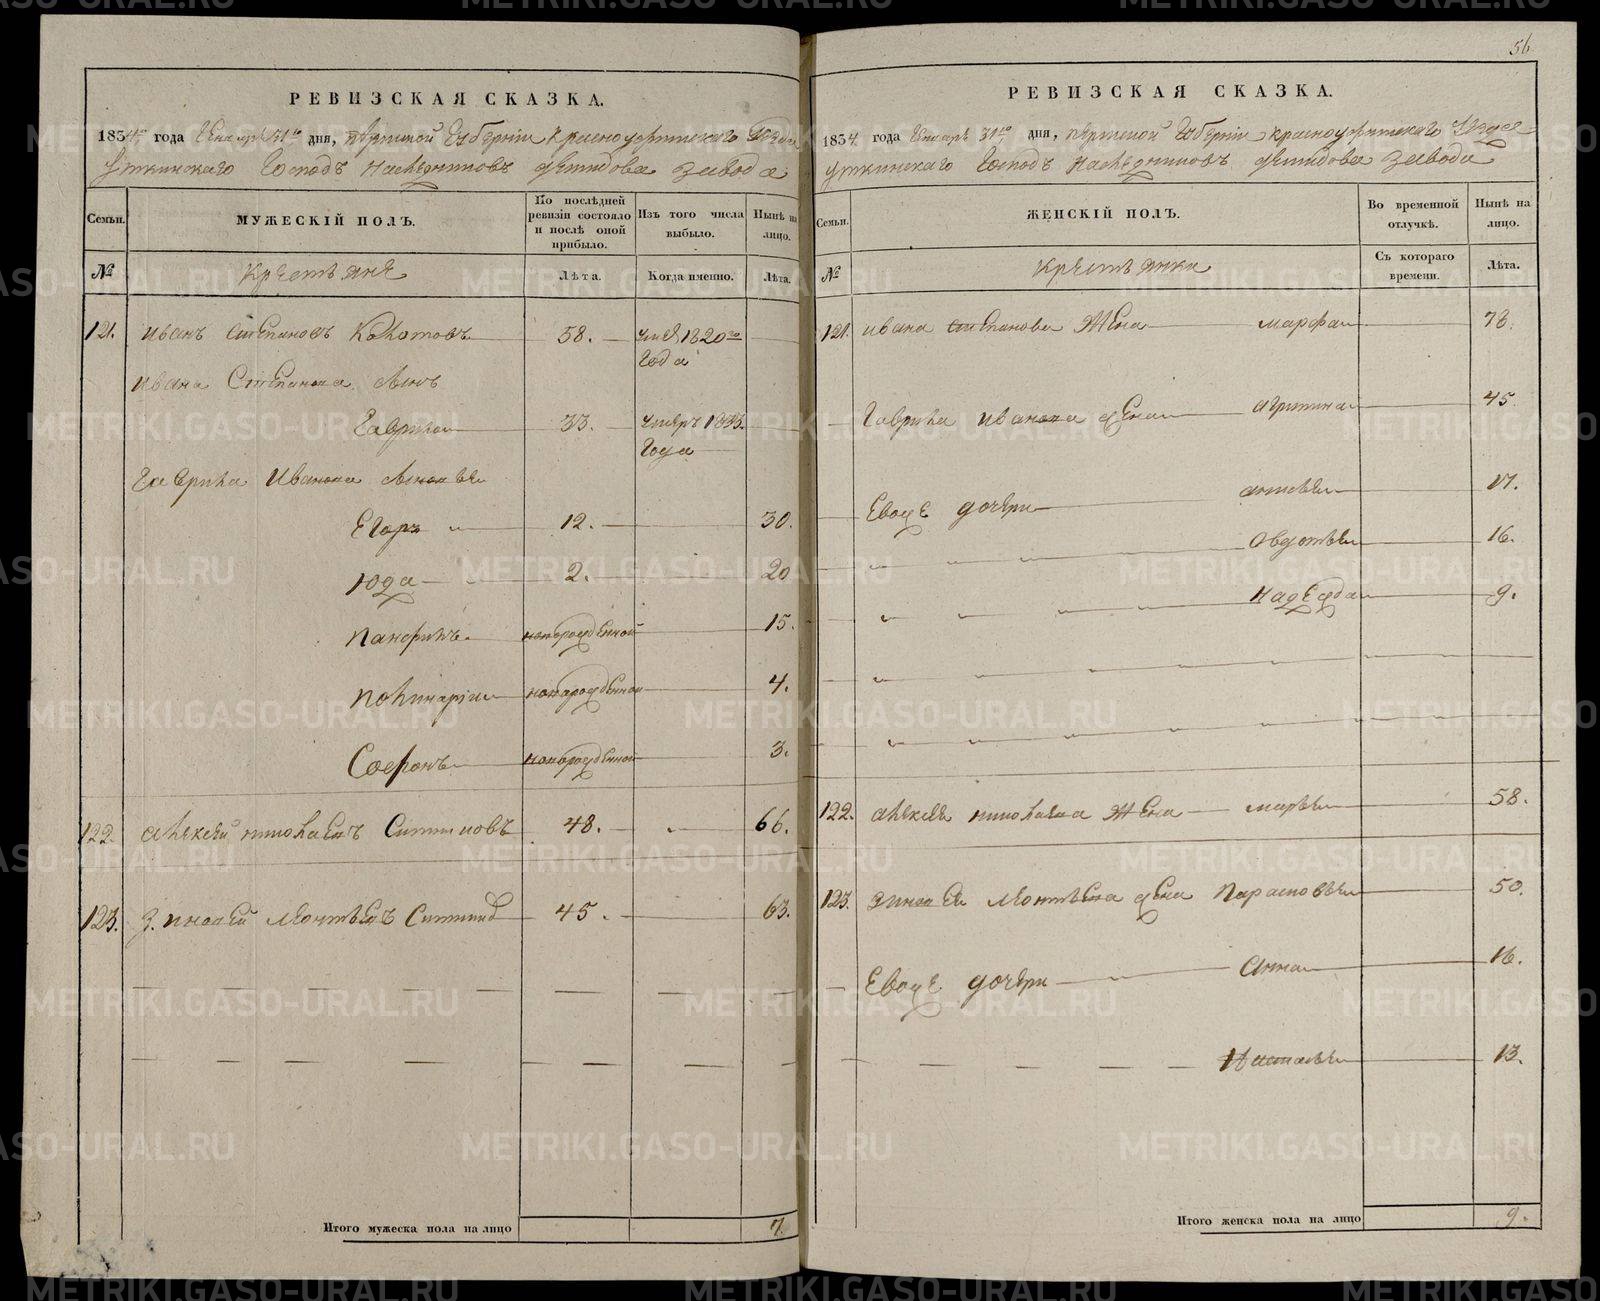 56
РЕВИЗСКАЯ СКАЗКА.
1834го года Генваря 31го дня, Пермской Губерніи Красноуфимскаго Уѣзда
Уткинскаго Господъ Наслѣдниковъ Демидова завода
Семьи. МУЖЕСКІЙ ПОЛЪ. По послѣдней ревизіи состояло и послѣ оной прибыло. Изъ того числа выбыло. Нынѣ на лицо.
№ Крестьяне Лѣта. Когда именно. Лѣта.
121. Иванъ Степановъ 58. 1820го Года
Ивана Степанова сынъ
Гаврила 33. 1833. Года
Гаврила Иванова сыновья
Егоръ 12. 30.
Юда 2. 20
Панфилъ новорожденной 15.
Полинарій новорожденной 4.
Софронъ новорожденной 3.
122. Алексей Николаевъ Ситниковъ 48. 66.
123. Зиновей Леонтьевъ Ситниковъ 45. 63.
Итого мужеска пола на лицо 7.
РЕВИЗСКАЯ СКАЗКА.
1834 года Генваря 31го дня, Пермской Губерніи Красноуфимскаго Уѣзда
Уткинскаго Господъ Наслѣдниковъ Демидова завода
Семьи. ЖЕНСКІЙ ПОЛЪ. Во временной отлучкѣ. Нынѣ на лицо.
№ Крестьянки Съ котораго времени. Лѣта.
121. Ивана Степанова Жена Марфа 78.
Гаврила Иванова жена Агрипина 45
Евоже дочери 17.
Овдотья 16.
Надежда 9.
122. Алексея Николаева Жена Марья 58.
123. Зиновея Леонтьева жена Парасковья 50.
Евоже дочери Анна 16.
Настасья 13.
Итого женска пола на лицо 9.
METRIKI.GASO-URAL.RU